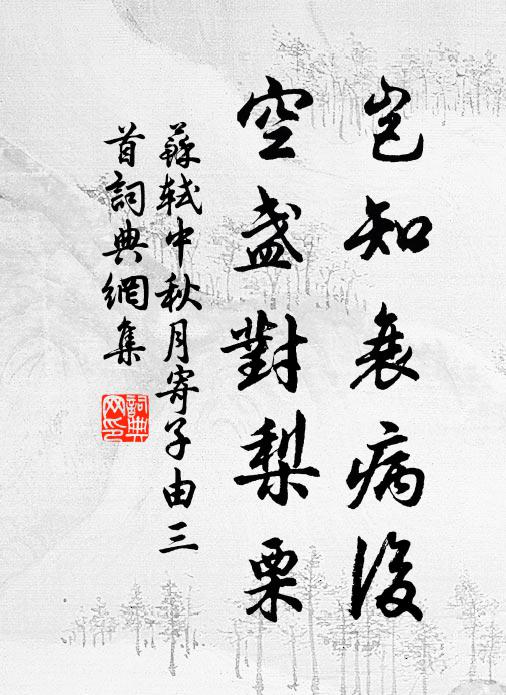 豈知衰病後
空盞對梨栗
蘇軾中秋月寄子由三
首詞典網集
詞典
网印